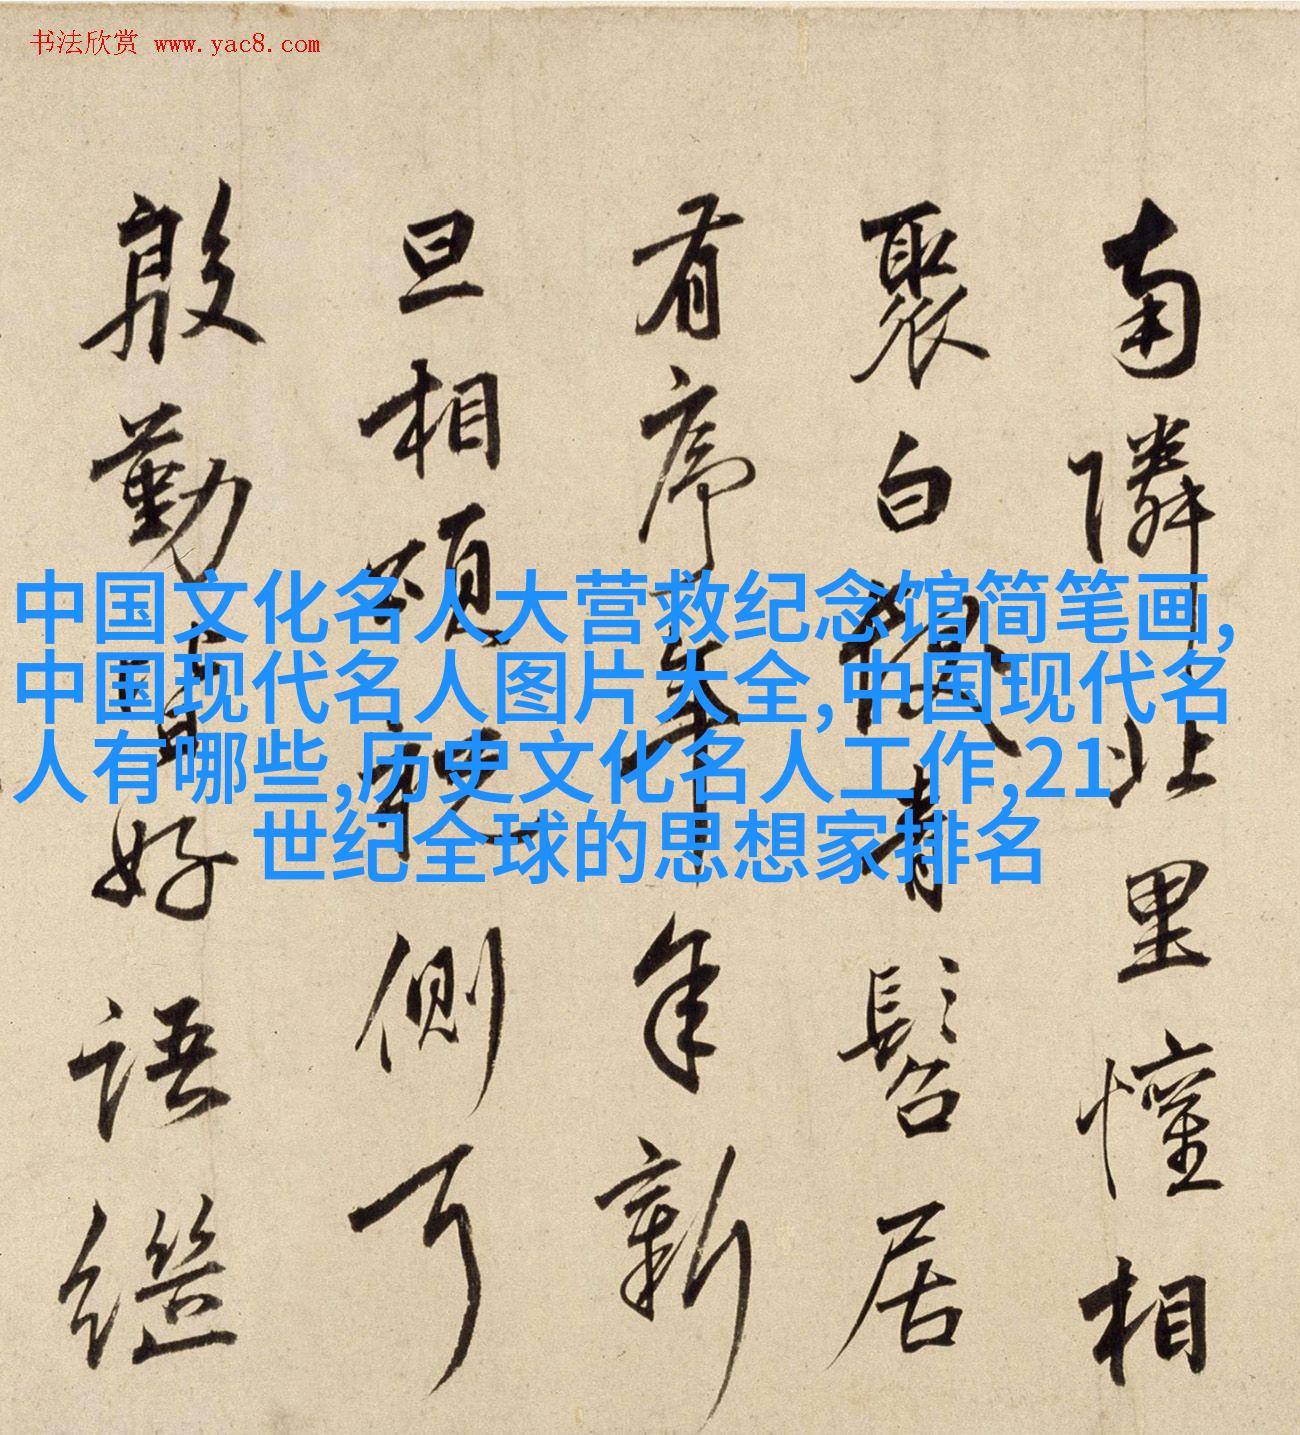 书法欣赏 www.yac8.com
中国文化名人大营救纪念馆简笔画,
中国现代名人图片大全,中国现代名
人有哪些,历史文化名人工作,21
世纪全球的思想家排名
南隣北里懽相
聚白
青髫居
有序
年新
旦相
側耳
殷勤
好語繼